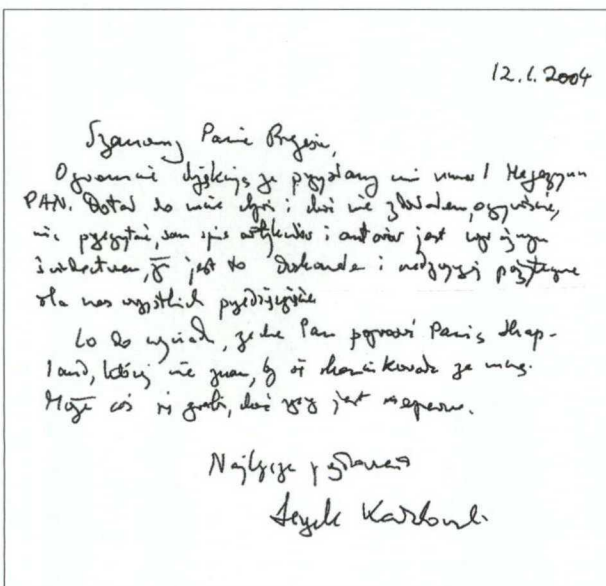 12.1.2004
Szanowny Panie Prezesie,
Ogromnie dziękuję za przysłany mi numer 1 Magazynu
PAN. Dotarł do mnie dziś i choć nie zdołałem, oczywiście,
nic przeczytać, sam spis artykułów i autorów jest wyraźnym
świadectwem, że jest to doskonałe i nadzwyczaj pożyteczne
dla nas wszystkich przedsięwzięcie.
Co do wywiadu, zechce Pan poprosić Panią Shap-
land, której nie znam, by się skontaktowała ze mną.
Może coś się zrobi, choć rzecz jest niepewna.
Najlepsze pozdrowienia
Leszek Kołakowski